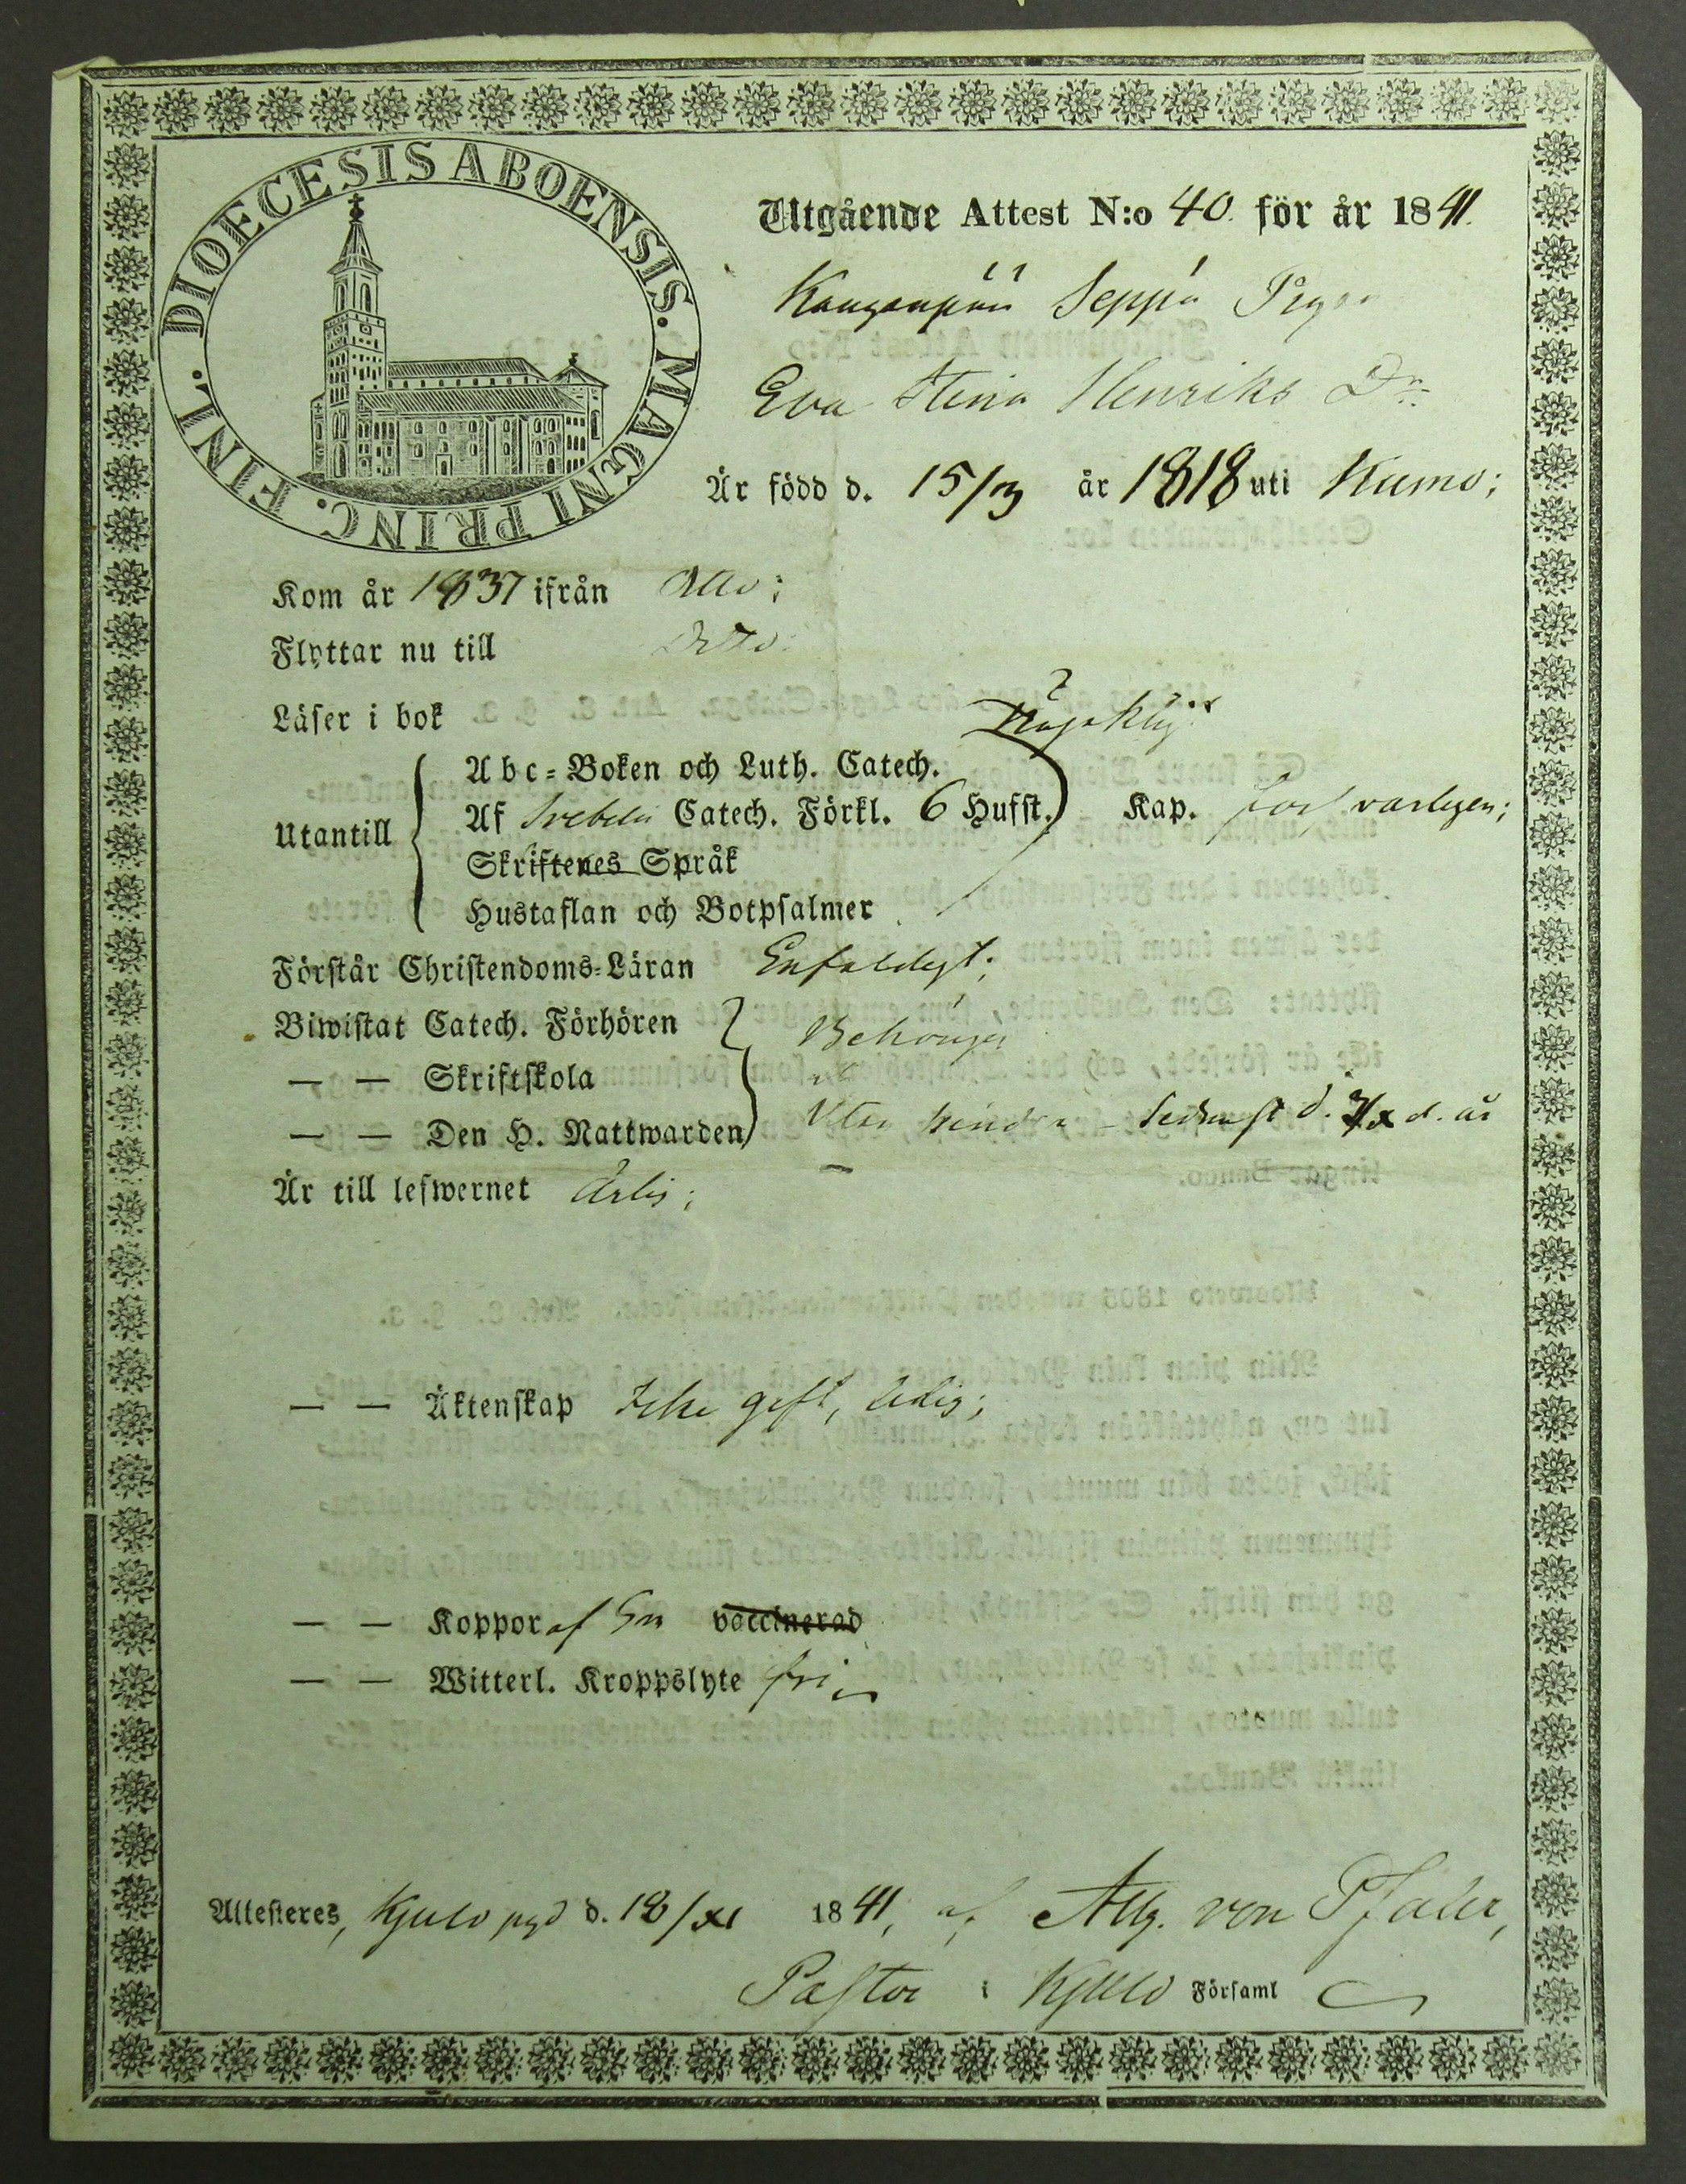 DIOECESIS ABOENSIS. MAGNI PRINC. FINL.
Utgående Attest N:o 40. för år 1841.
Kauganpää Seppä
Eva Stina Henriks Dr
Är född d. 15/3 år 1818 uti Kumo;
Kom år 1837 ifrån dito;
Flyttar nu till dito.
Läser i bok Någorlig
Utantill
Abc-Boken och Luth. Catech.
Af Svebelii Catech. Förkl. 6 Hufst. Kap. försvarligen;
Skriftenes Språk
Hustaflan och Botpsalmer
Förstår Christendoms-Läran Enfaldigt;
Biwistat Catech. Förhören Behörigen
— — Skriftskola
— — Den H. Nattwarden Utan hinder – sednast d. /x d. år
Är till lefwernet Ärlig;
— — Äktenskap Icke gift, ledig;
— — Koppor af vaccinerad
— — Witterl. Kroppslyte fri
Attesteres, Kjulo pgd d. 18/xi 1841, af Aug. von Pfaler,
Pastor i Kjulo Församl